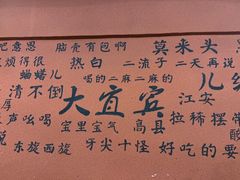 吧意思 脑壳有包啊 莫来头
烦得很 热白 二流子 二天再说
蛐蛐儿 喝的二麻二麻的 儿
清不倒 大宜宾 江安
厚
声吆喝 宝里宝气 高县 拉稀摆带
说 东旋西旋 牙尖十怪 好吃的要